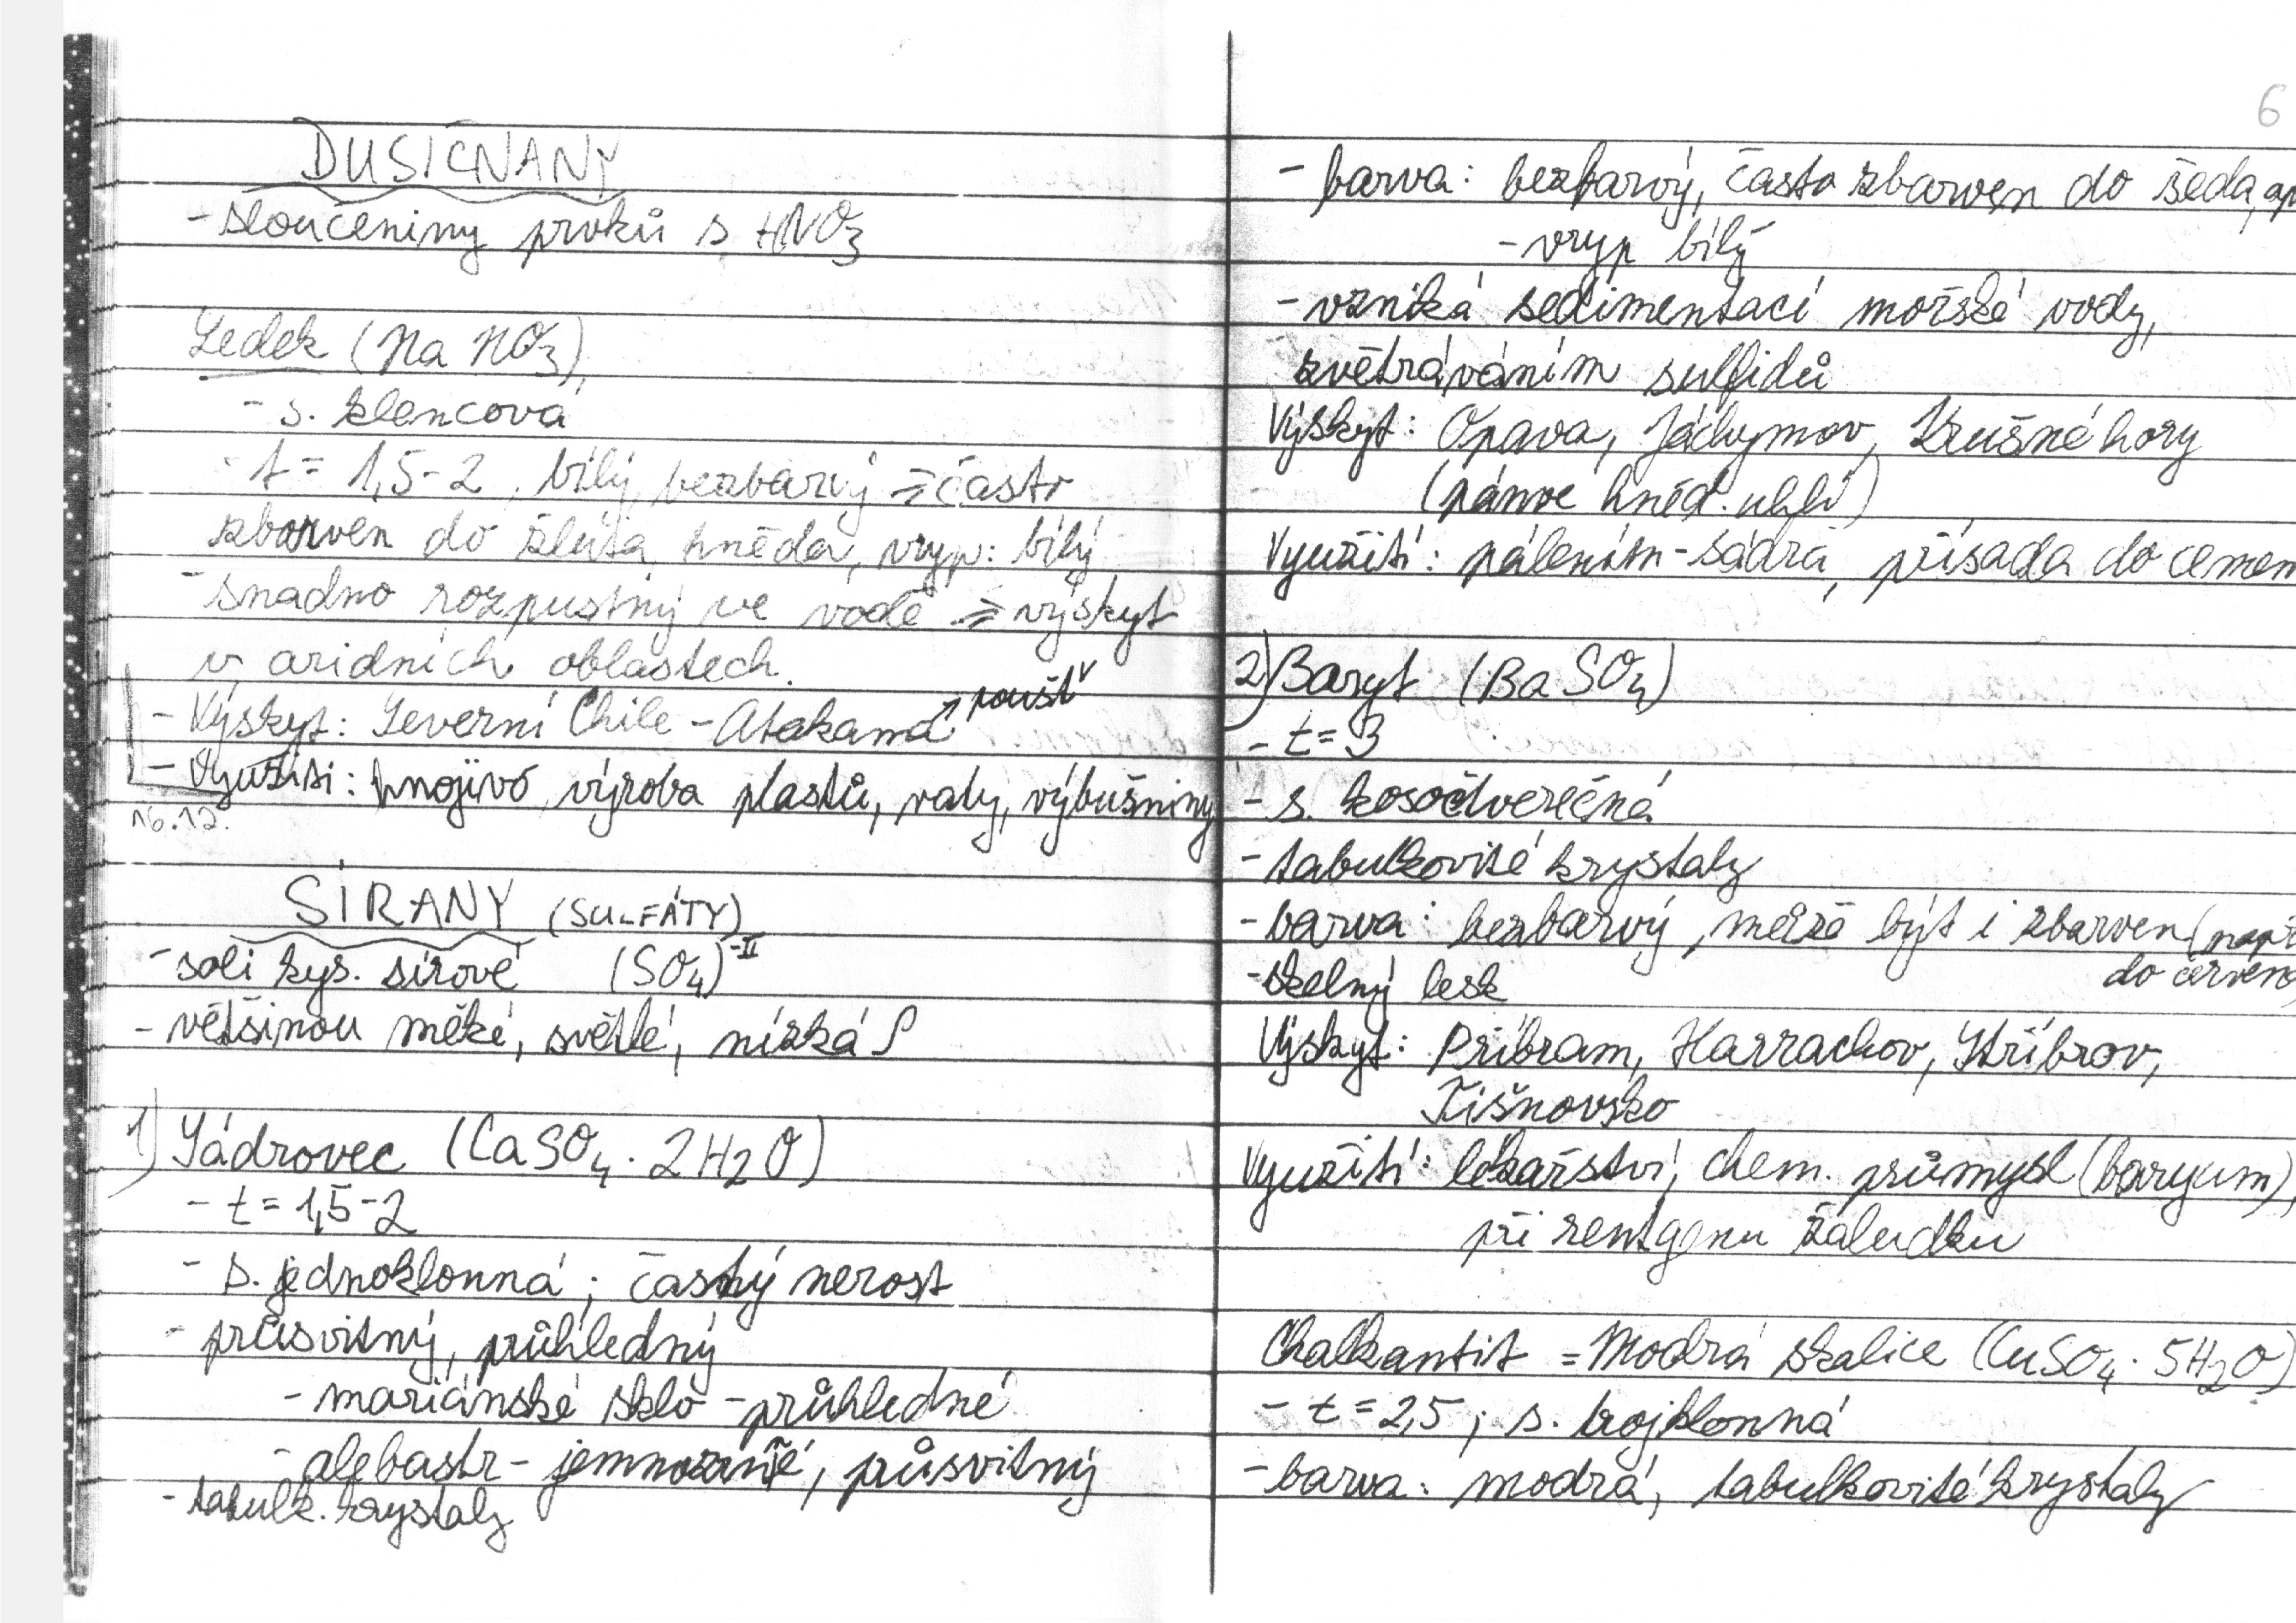 DUSIČNANY
- sloučeniny prvků s HNO3
Ledek (NaNO3)
- s. klencová
- t = 1,5-2, bílý, bezbarvý => často
zbarven do žluta, hněda, vryp: bílý
- snadno rozpustný ve vodě => výskyt
v aridních oblastech.
- Výskyt: Severní Chile - Atakama ↗ poušť
- Využití: hnojivo, výroba plastů, rakety, výbušniny
16.12.
SÍRANY (SULFÁTY)
- soli kys. sírové (SO4)-II
- většinou měké, světlé, nízká ρ
1) Sádrovec (CaSO4 . 2H2O)
- t = 1,5-2
- s. jednoklonná; častý nerost
- průsvitný, průhledný
- mariánské sklo - průhledné
- alebastr - jemnozrné, průsvitný
- tabulk. krystaly
6
- barva: bezbarvý, často zbarven do šeda,
- vryp bílý
- vzniká sedimentací mořské vody,
zvětráváním sulfidů
Výskyt: Opava, Jáchymov, Krušné hory
(pánve hněd. uhlí)
Využití: pálením - sádra, přísada do cemen
2) Baryt (BaSO4)
- t = 3
- s. kosočtverečná
- tabulkovité krystaly
- barva: bezbarvý, může být i zbarven (např
do červeno
- skelný lesk
Výskyt: Příbram, Harrachov, Stříbrov,
Tišnovsko
Využití: lékařství, chem. průmysl (baryum),
při rentgenu žaludku
Chalkantit = Modrá skalice (CuSO4 . 5H2O)
- t = 2,5; s. trojklonná
- barva: modrá, tabulkovité krystaly